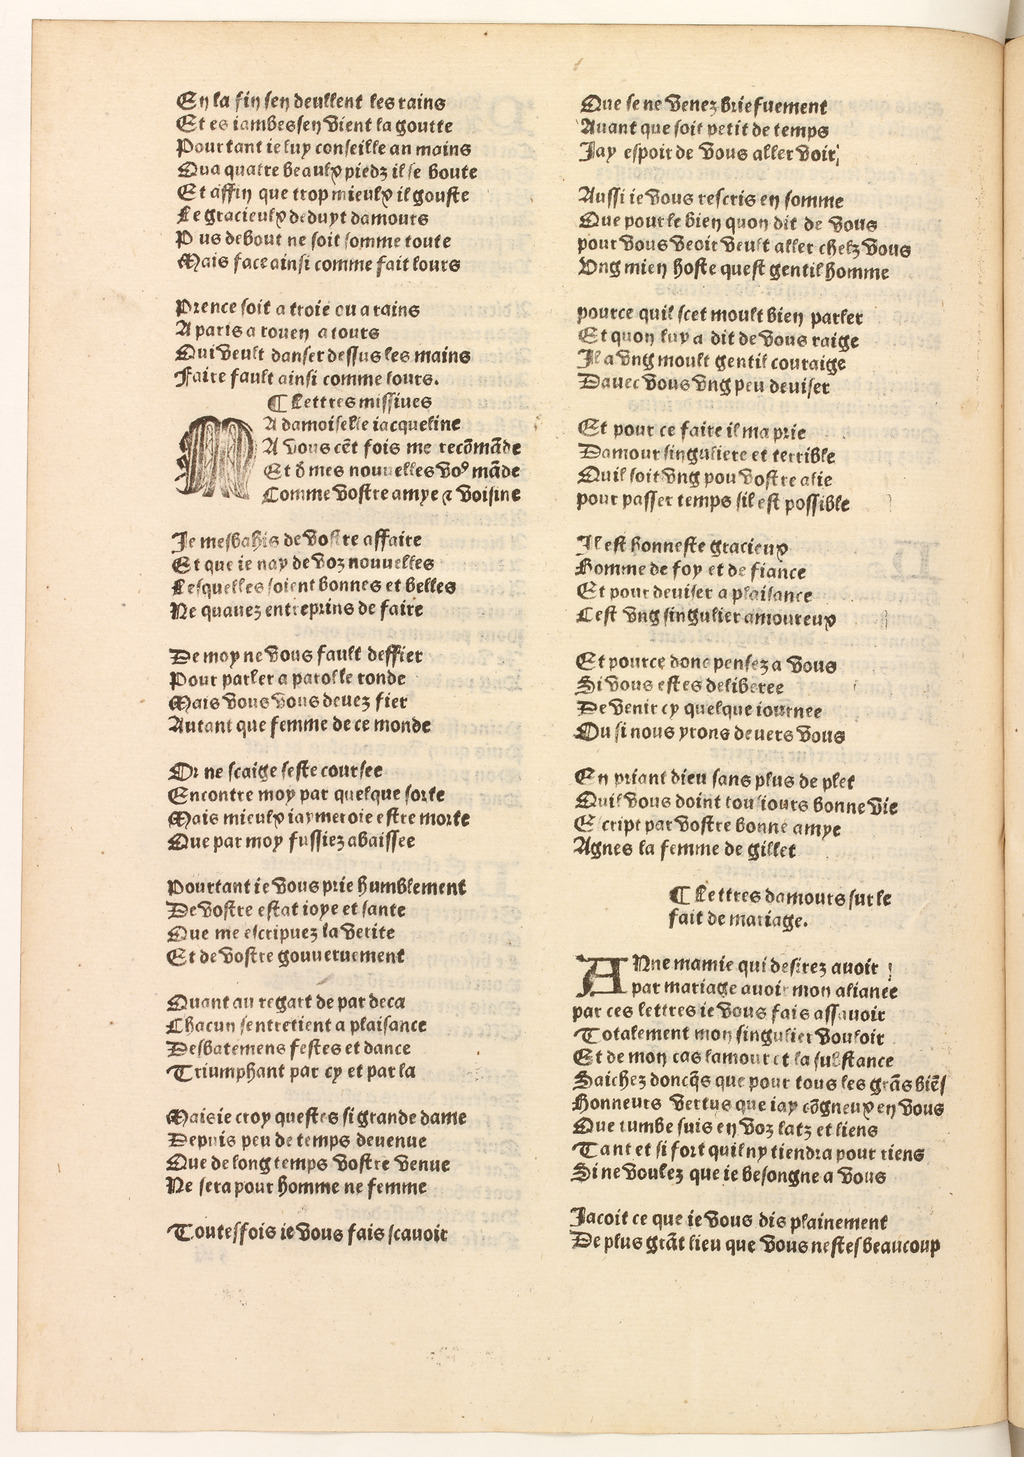 En la fin sen deullent les rains
Et es iambes sen vient la goutte
Pourtant ie luy conseille au mains
Qua quatre beaulx piedz il se boute
Et affin que trop mieulx il gouste
Le gracieulx deduyt damours
P us debout ne soit somme toute
Mais face ainsi comme fait lours

Prence soit a troie ou a rains
A paris a rouen a tours
Qui veult danser dessus les mains
Faire fault ainsi comme lours.
¶ Lettres missiues
MA damoiselle iacqueline
A vous cēt fois me recōmāde
Et d̄ mes nouuelles voꝰ māde
Comme vostre amye ⁊ voisine

Je mesbahis de vostre affaire
Et que ie nay de voz nouuelles
Lesquelles soient bonnes et belles
Ne quauez entreprins de faire

De moy ne vous fault deffier
Pour parler a parolle ronde
Mais vous vous deuez fier
Autant que femme de ce monde

Or ne scaige seste coursee
Encontre moy par quelque sorte
Mais mieulx iaymeroie estre morte
Que par moy fussiez abaissee

Pourtant ie vous prie humblement
De vostre estat ioye et sante
Que me escripuez la verite
Et de vostre gouueruement

Quant au regart de par deca
Chacun sentretient a plaisance
Desbatemens festes et dance
Triumphant par cy et par la

Mais ie croy questes si grande dame
Depuis peu de temps deuenue
Que de long temps vostre venue
Ne sera pour homme ne femme

Toutesfois ie vous fais scauoir
Que se ne venez briefuement
Auant que soit petit de temps
Jay espoir de vous aller voir

Aussi ie vous rescris en somme
Que pour le bien quon dit de vous
pour vous veoir veult aller chelz vous
Vng mien hoste quest gentil homme

pource quil scet moult bien parler
Et quon luy a dit de vous raige
Il a vng moult gentil couraige
Dauec vous vng peu deuiser

Et pour ce faire il ma prie
Damour singuliere et terrible
Quil soit vng pou vostre alie
pour passer temps sil est possible

Il est honneste gracieux
Homme de foy et de fiance
Et pour deuiser a plaisance
Cest vng singulier amoureux

Et pource donc pensez a vous
Si vous estes deliberee
De venir cy quelque iournee
Ou si nous yrons deuers vous

En priant dieu sans plus de plet
Quil vous doint tousiours bonne vie
Escript par vostre bonne amye
Agnes la femme de gillet

¶ Lettres damours sur le
fait de mariage.

ANne mamie qui desirez auoir
par mariage auoir mon aliance
par ces lettres ie vous fais assauoir
Totalement mon singulier vouloir
Et de mon cas lamour et la substance
Saichez doncq̄s que pour tous les grās biēs
Honneurs vertus que iay cōgneux en vous
Que tumbe suis en voz latz et liens
Tant et si fort quil ny tiendra pour riens
Si ne voulez que ie besongne a vous

Jacoit ce que ie vous dis plainement
De plus grāt lieu que vous nestes beaucoup